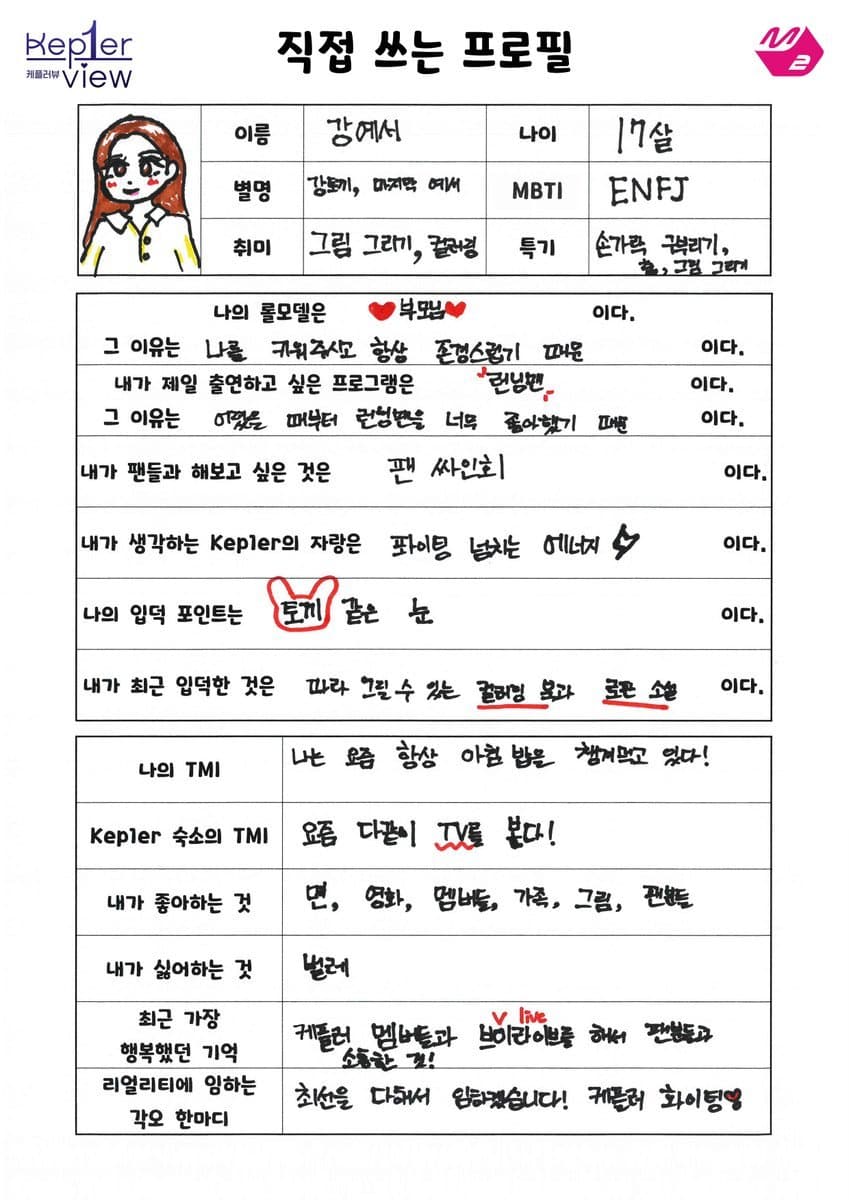 Kep1er
케플러뷰 view
직접 쓰는 프로필
M2
이름 강예서 나이 17살
별명 강토끼, 마지막 예서 MBTI ENFJ
취미 그림 그리기, 컬러링 특기 손가락 구부리기,
춤, 그림 그리기
나의 롤모델은 부모님 이다.
그 이유는 나를 키워주시고 항상 존경스럽기 때문 이다.
내가 제일 출연하고 싶은 프로그램은 런닝맨 이다.
그 이유는 어렸을 때부터 런닝맨을 너무 좋아했기 때문 이다.
내가 팬들과 해보고 싶은 것은 팬 싸인회 이다.
내가 생각하는 Kep1er의 자랑은 퐈이팅 넘치는 에너지 이다.
나의 입덕 포인트는 토끼 같은 눈 이다.
내가 최근 입덕한 것은 따라 그릴 수 있는 컬러링 북과 로판 소설 이다.
나의 TMI 나는 요즘 항상 아침 밥은 챙겨먹고 있다!
Kep1er 숙소의 TMI 요즘 다같이 TV를 본다!
내가 좋아하는 것 면, 영화, 멤버들, 가족, 그림, 팬분들
내가 싫어하는 것 벌레
최근 가장
행복했던 기억 케플러 멤버들과 브이라이브를 해서 팬분들과
V live
소통한 것!
리얼리티에 임하는
각오 한마디 최선을 다해서 임하겠습니다! 케플러 화이팅